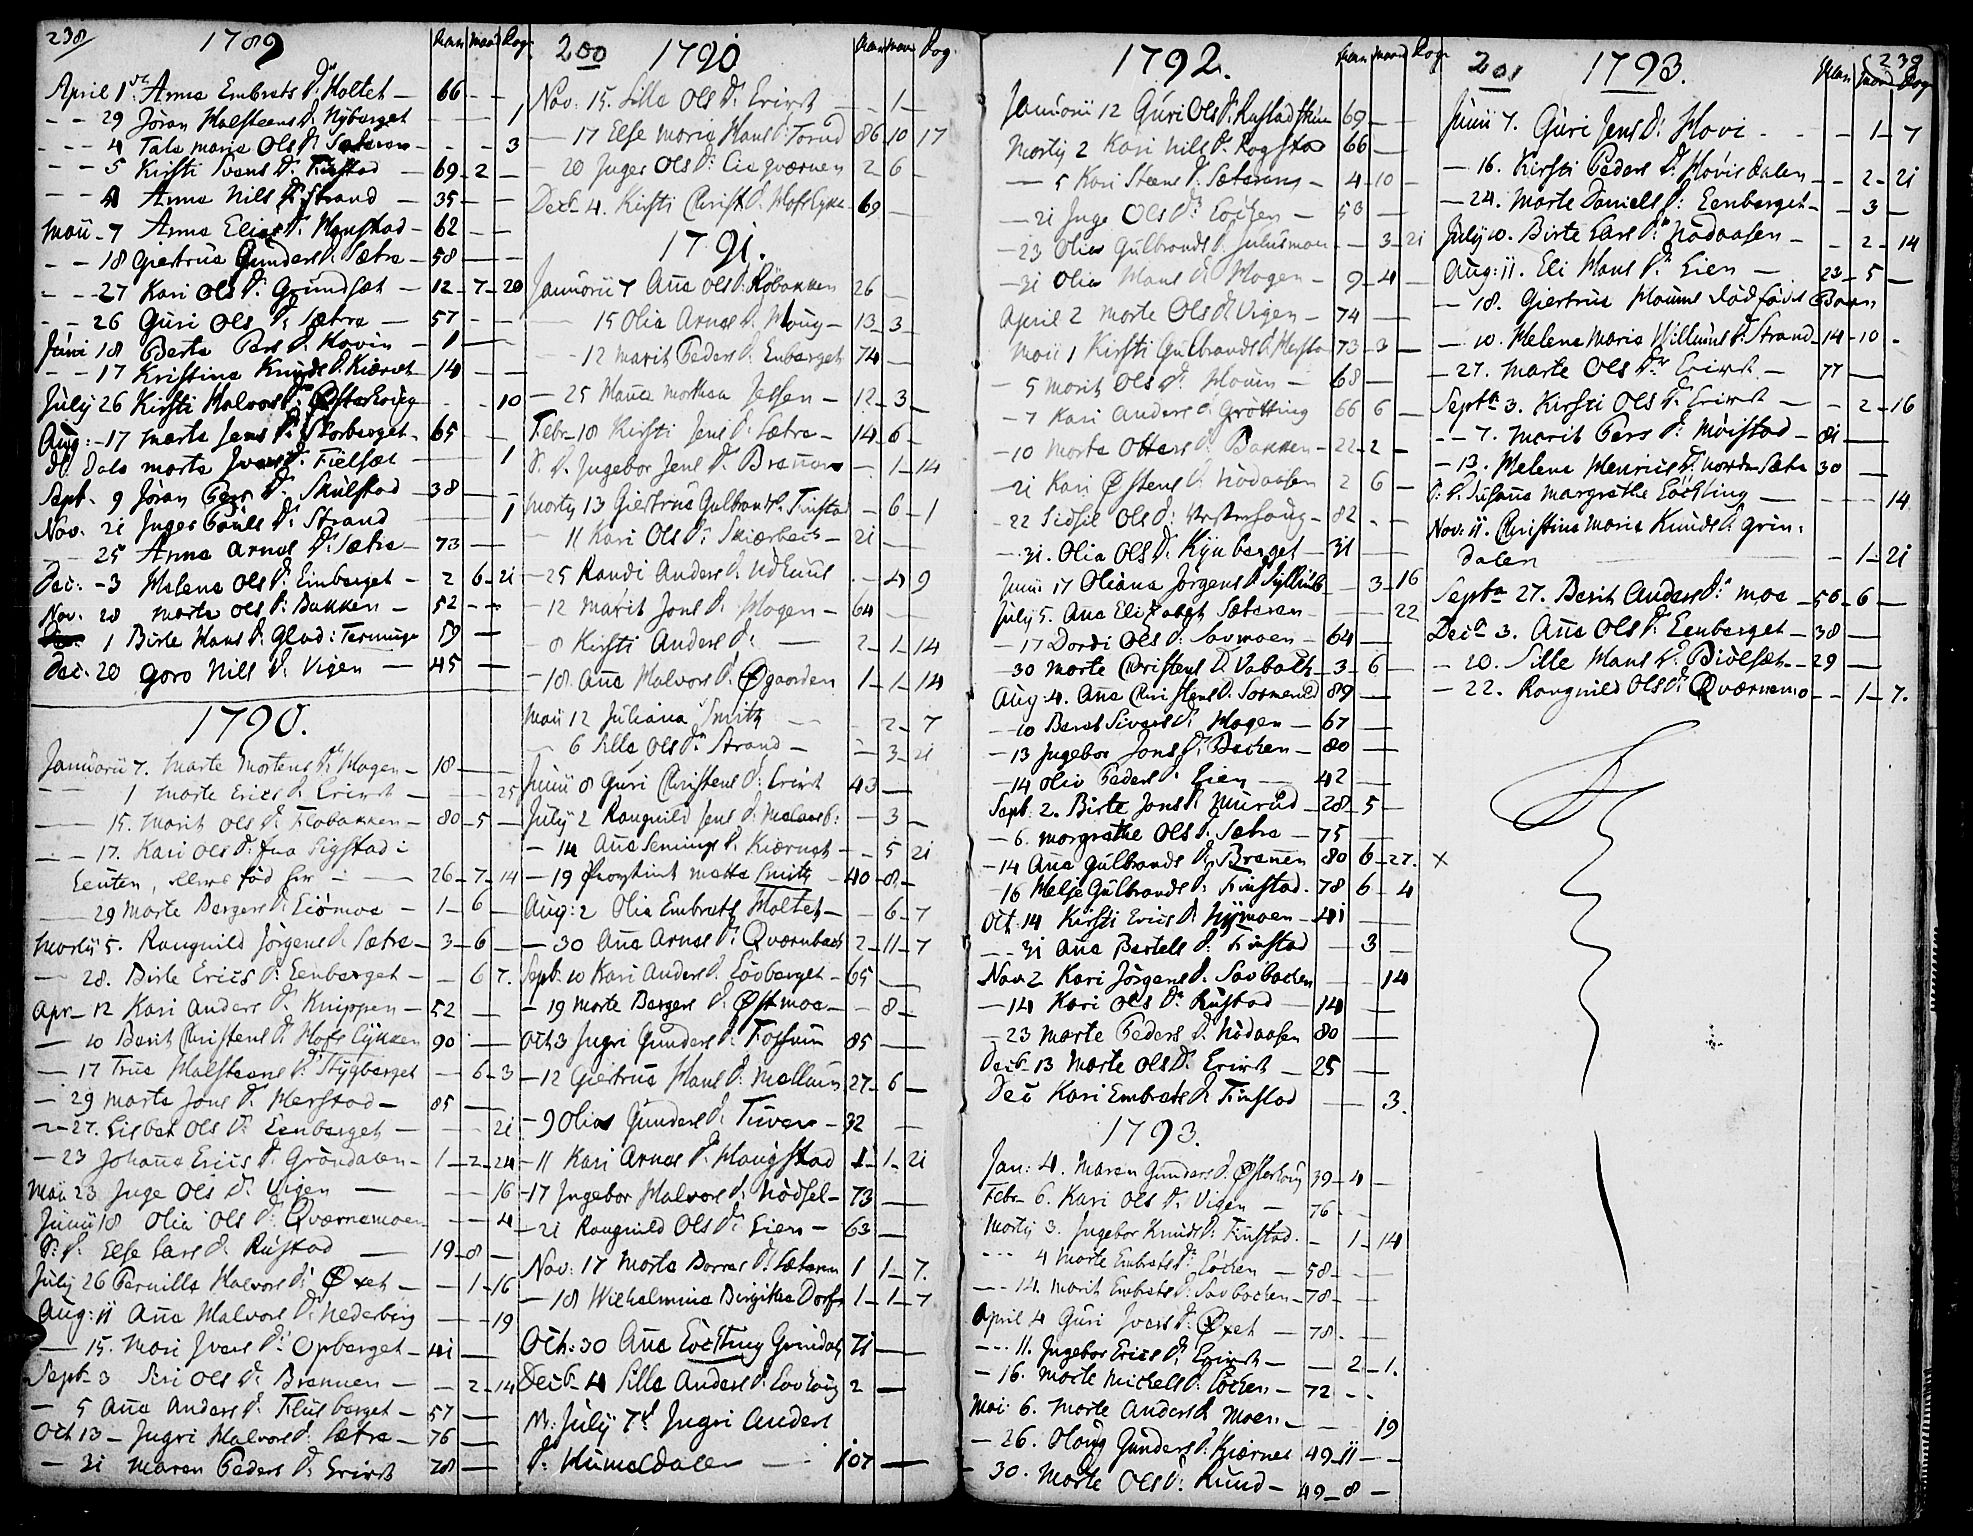 238
1789
Aar Maan Dag
April 1ste Anna Embrets Dr Holtet — 66 — —
— — 29 Jøran Halsteens Dr Nyberget — — 1
— — 4 Tale Maria Ols Dr Sæteren — — 3
— — 5 Kirsti Svens Dr — 69 — 2 —
— — Anna Nills Dr Strand — 35 — —
Maii — 7 Anna Elias Dr Hanstad — 62 — —
— — 18 Giertrue Gunders Dr Sætre — 58 — —
— — 27 Kari Ols Dr Grundset — 12 — 7 — 20
— — 26 Guri Ols Dr Sætre — 57 — —
Juni 18 Berte Pers Dr Hovin — 1 —
— — 17 Kristina Knuds Dr Kiærnet — 14 — —
July 26 Kirsti Halvors Dr Østerhoug — — 10
Aug: — 17 Marte Jens Dr Skorberget — 65 — —
Marte Ivers Dr Fielset — — 1
Sept. 9 Jøran Pers Dr Skulstad — 38 — —
Nov. 21 Inger Pouls Dr Strand — — 1
25 Anna Arnes Dr Sætre — 73 —
Dec: — 3 Helene Ols Dr Eenberget — 2 6 — 21
Nov. 28 Marte Ols Dr Bakken — 52 — —
1 Birte Hans Dr Glad: Terninge 59 —
Dec. 20 Goro Nills Dr Vigen — 45 —
1790.
Januarii 7. Marte Mortens Dr Hagen — 18 — —
— — 1 Marte Erics Dr Erixst — — 25
— 15. Marit Ols Dr Flobakken — 80 — 5 —
— — 17. Kari Ols Dr fra Sigstad i
Leuten, 26 — 7 — 14
— 29 Marte Bergers Dr Eiømoe — 1 — 6 —
Martij 5. Rangnild Jørgens Dr Sætre — 3 — 6 —
— 28. Birte Erics Dr Eenberget — — 6 7.
Apr — 12 Kari Anders Dr Knippen — 52 — —
— 10 Berit Christens Dr Hofs Lykken 90 — —
— 17 True Halsteens Dr Stygberget — 6 — 3
— 29 Marte Jons Dr Herstad — 85 —
— 27. Lisbet Ols Dr Eenberget — — 21
— 23 Johana Erics Dr Grøndalen — 1 — 2 — 24
Maii 23 Inge Ols Dr Vigen — — 16
Junii 18 Olia Ols Dr Qværnemoen — — 4
D: D. Else Lars Dr Rustad — 19 — 8 —
July 26 Pernille Halvors Dr Øxet — — 1 — 16
Aug: 11 Ana Halvors Dr Nederbÿ — — 19
— 15. Mari Ivers Dr Opberget — 41 —
Septb 3 Siri Ols Dr Brennen — — 2 — 14
— 5 Ana Anders Dr Flusberget — 57 —
Oct 13 — Ingri Halvors Dr Sætre — 76 —
— 31 Maren Peders Dr Erixst 28 —
200
1790
Aar Maan Dag
Nov: 15. Sille Ols Dr Erixst — — 1 —
— 17 Else Maria Hans Dr Torud 86 10 17
— 20 Inger Ols Dr qværnen 2 6 —
Decb. 4. Kirsti Christ. Dr Hofs Lykke 69 —
1791.
Januarii 7 Ana Ols Dr Røbakken 26 —
— 15 Olia Arnes Dr Houg — 13 — 3 —
— 12 Marit Peders Dr Enberget 74 —
— 25 Mathea Jessen — 12 — 3 —
Febr — 18 Kirsti Jens Dr Sætre — 14 — 6 —
D. D. Ingebor Jens Dr Brenen — 1 — 14
Martij 13 Giertrue Gulbrands Dr Finstad — 6 — 1
— 11 Kari Ols Dr Skiærbech — 21 —
— 25 Randi Anders Dr — 4 9
— 12 Marit Jons Dr Hagen — 64 —
8 Kirsti Anders Dr — 2 — 1 — 14
— 18 Ana Halvors Dr Øgaarden 1 — 1 — 14
Maii 12 Juliana Smith — 2 — 7
— 6 Sille Ols Dr Strand — — 3 — 21
Junii 8 Guri Christens Dr Erixst 43 —
July 2 Rangnild Jens Dr — 3 —
— 14 Ana Semings Dr Kiærnet — — 5 21
— 19 Mette Smith — 40 — 8 —
Aug: 2 Olia Embrets Holtet — — 6 — 7
— 30 Ana Arnes Dr Qværnbech 2 — 11 — 7
Septb. 10 Kari Anders Dr Løvberget — 65 —
— 19 Marte Bergers Dr Østmoe — — 8 —
Octb 3 Ingri Gunders Dr Fossum 85 —
— 12 Giertrue Hans Dr Mellum 27 — 6 —
— 9 Olia Gunders Dr Tuven — 32 —
— 11 Kari Arnes Dr Haugstad 1 — 1 — 21
— 17 Ingebor Halvors Dr Nødsel — 73 —
— 21 Rangnild Ols Dr Lien — 63 —
Nov: 17 Marte Borres Dr Sæteren 1 1 — 7.
— 18 Wilhelmine Birgitte Dorf 1 — 1 — 7
Octb: 30 Ana Løchting Grindal 71 —
Decb 4 Sille Anders Dr Løvhoug 2 —
N: July 7d Ingri Anders
Dr Humeldalen — 107 —
1792.
Aar Maan Dag
Januarii 12 Guri Ols Dr Rustad 69 —
Martij 2 Kari Nils Dr Rogstad 66 —
— 5 Kari Steens Dr Sæterens — 4 — 10 —
— 21 Inge Ols Dr Løchen — 53 —
— 23 Olia Gulbrands Dr Julusmoen — 3 — 21
— 31 Olia Hans Dr Hagen — 9 — 4 —
April 2 Marte Ols Dr Vigen — 74 —
Maii 1 Kirsti Gulbrands Dr Hersta 73 — 3 —
— 5 Marit Ols Dr Houm — 68 —
— 7 Kari Anders Dr Grøtting 66 6 —
— 10 Marte Otters Dr Bakken — 22 — 2 —
— 21 Kari Østens Dr Nødaasen 2 6 —
— 22 Sidsil Ols Dr Vesterhoug — 82 — —
— 31. Olia Ols Dr Kynberget — 31 —
Junii 17 Oliana Jørgens Dr — 3 — 16
July 5. Ana Elizabeth Sæteren — — 22
— 17 Dordi Ols Dr Savmoen — 64 —
— 30 Marte Christens Dr — 3 — 6 —
Aug. 4. Ana Christens Dr 89 —
— 10 Beret Sivers Dr Hagen — 67 —
— 13 Ingebor Jons Dr Bechen — 80 —
— 14 Oliv Peders Dr Lien — 42 —
Sept. 2. Birte Jons Dr Murud — 28 — 5 —
— 6. Margrethe Ols Dr Sætre — 75 —
— 14 Ana Gulbrands Dr Brenen 80 6 — 27. ×
— 16 Helje Gulbrands Dr Finstad. 78 6 — 4
Oct. 14 Kirsti Erics Dr Nymoen — 41 —
— — 31 Ana Bertels Dr Finstad — 3 —
Nov. 2 Kari Jørgens Dr Savbachen — 14
— 14 Kari Ols Dr Rustad — 14 —
— 23 Marte Peders Dr Nødaasen 80 —
Decb 13 Marte Ols Dr Erixst — 25 —
Dec Kari Embrets Dr Finstad — 3.
1793.
Jan: 4. Maren Gunders Dr Østerhoug 39 — 4 —
Febr 6. Kari Ols Dr Vigen — 76 — —
Martij 3. Ingebor Knuds Dr Finstad. — 1 — 14
— — — 4 Marte Embrets Dr Løchen — 58 — —
— — 14. Marit Embrets Dr Savbachen — 78 — —
April 4 Guri Ivers Dr Øxet — 78 — —
— — — 11. Ingebor Erics Dr Erixst — — 2 — 1.
— 16. Marte Michels Dr Løchen — 72 — —
Mai: 6. Marte Anders Dr Moen — — 19
— 26. Oloug Gunders Dr Kiærnet 49 — 11 — —
— 30. Marte Ols Dr Ruud — 49 — 8 —
201
1793.
239
Aar Maan Dag
Junii 7. Guri Jens Dr Hovi — — 1 — 7
— 16. Kirsti Peders Dr Hovisdalen — — 2 — 21
— 24. Marte Daniels Dr Eenberget — — 3 —
July 10. Birte Lars Dr Nødaasen — — 2 — 14
Aug: 11. Eli Hans Dr Lien — 23 — 5 —
— 18. Giertrue Houms dødfødt Barn
— 10. Helena Maria Willums Dr Strand — 14 — 10 —
— 27. Marte Ols Dr Erixst — 77 —
Septb 3. Kirsti Ols Dr Erixst — — 2 — 16
— — 7. Marit Pers Dr Møistad — 81 —
— 13. Helena Henrics Dr Nordre Sætre 30 —
D: D. Susana Margrethe Løchting — — 14
Nov: 11. Christina Maria Knuds Dr Grin-
dalen — 1 — 21
Septb 27. Berit Anders Dr Moe — 56 — 6 —
Decb 3. Ana Ols Dr Eenberget — 38 —
— 20. Sille Hans Dr Biølset — 29 —
— 22. Rangnild Ols Dr Qværnemo — — 1 — 7.